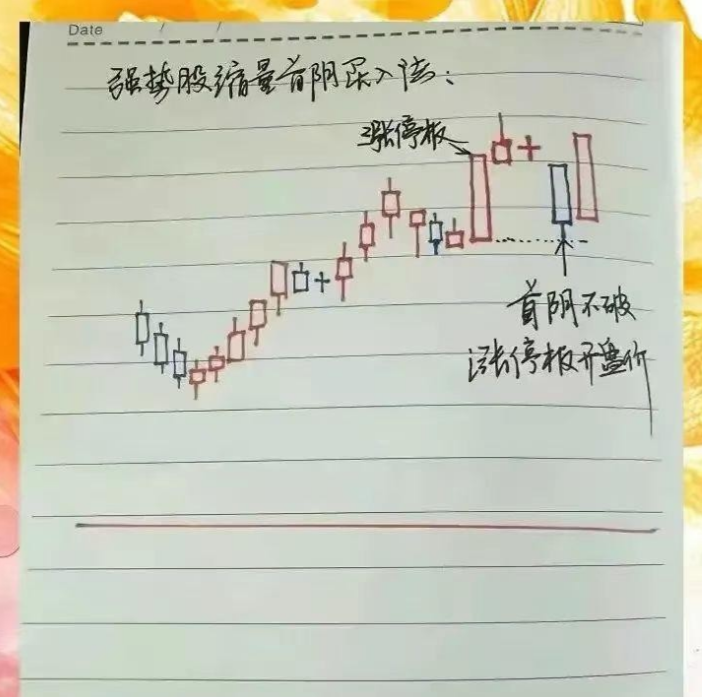 Date
强势股缩量首阴买入法：
涨停板
首阴不破
涨停板开盘价